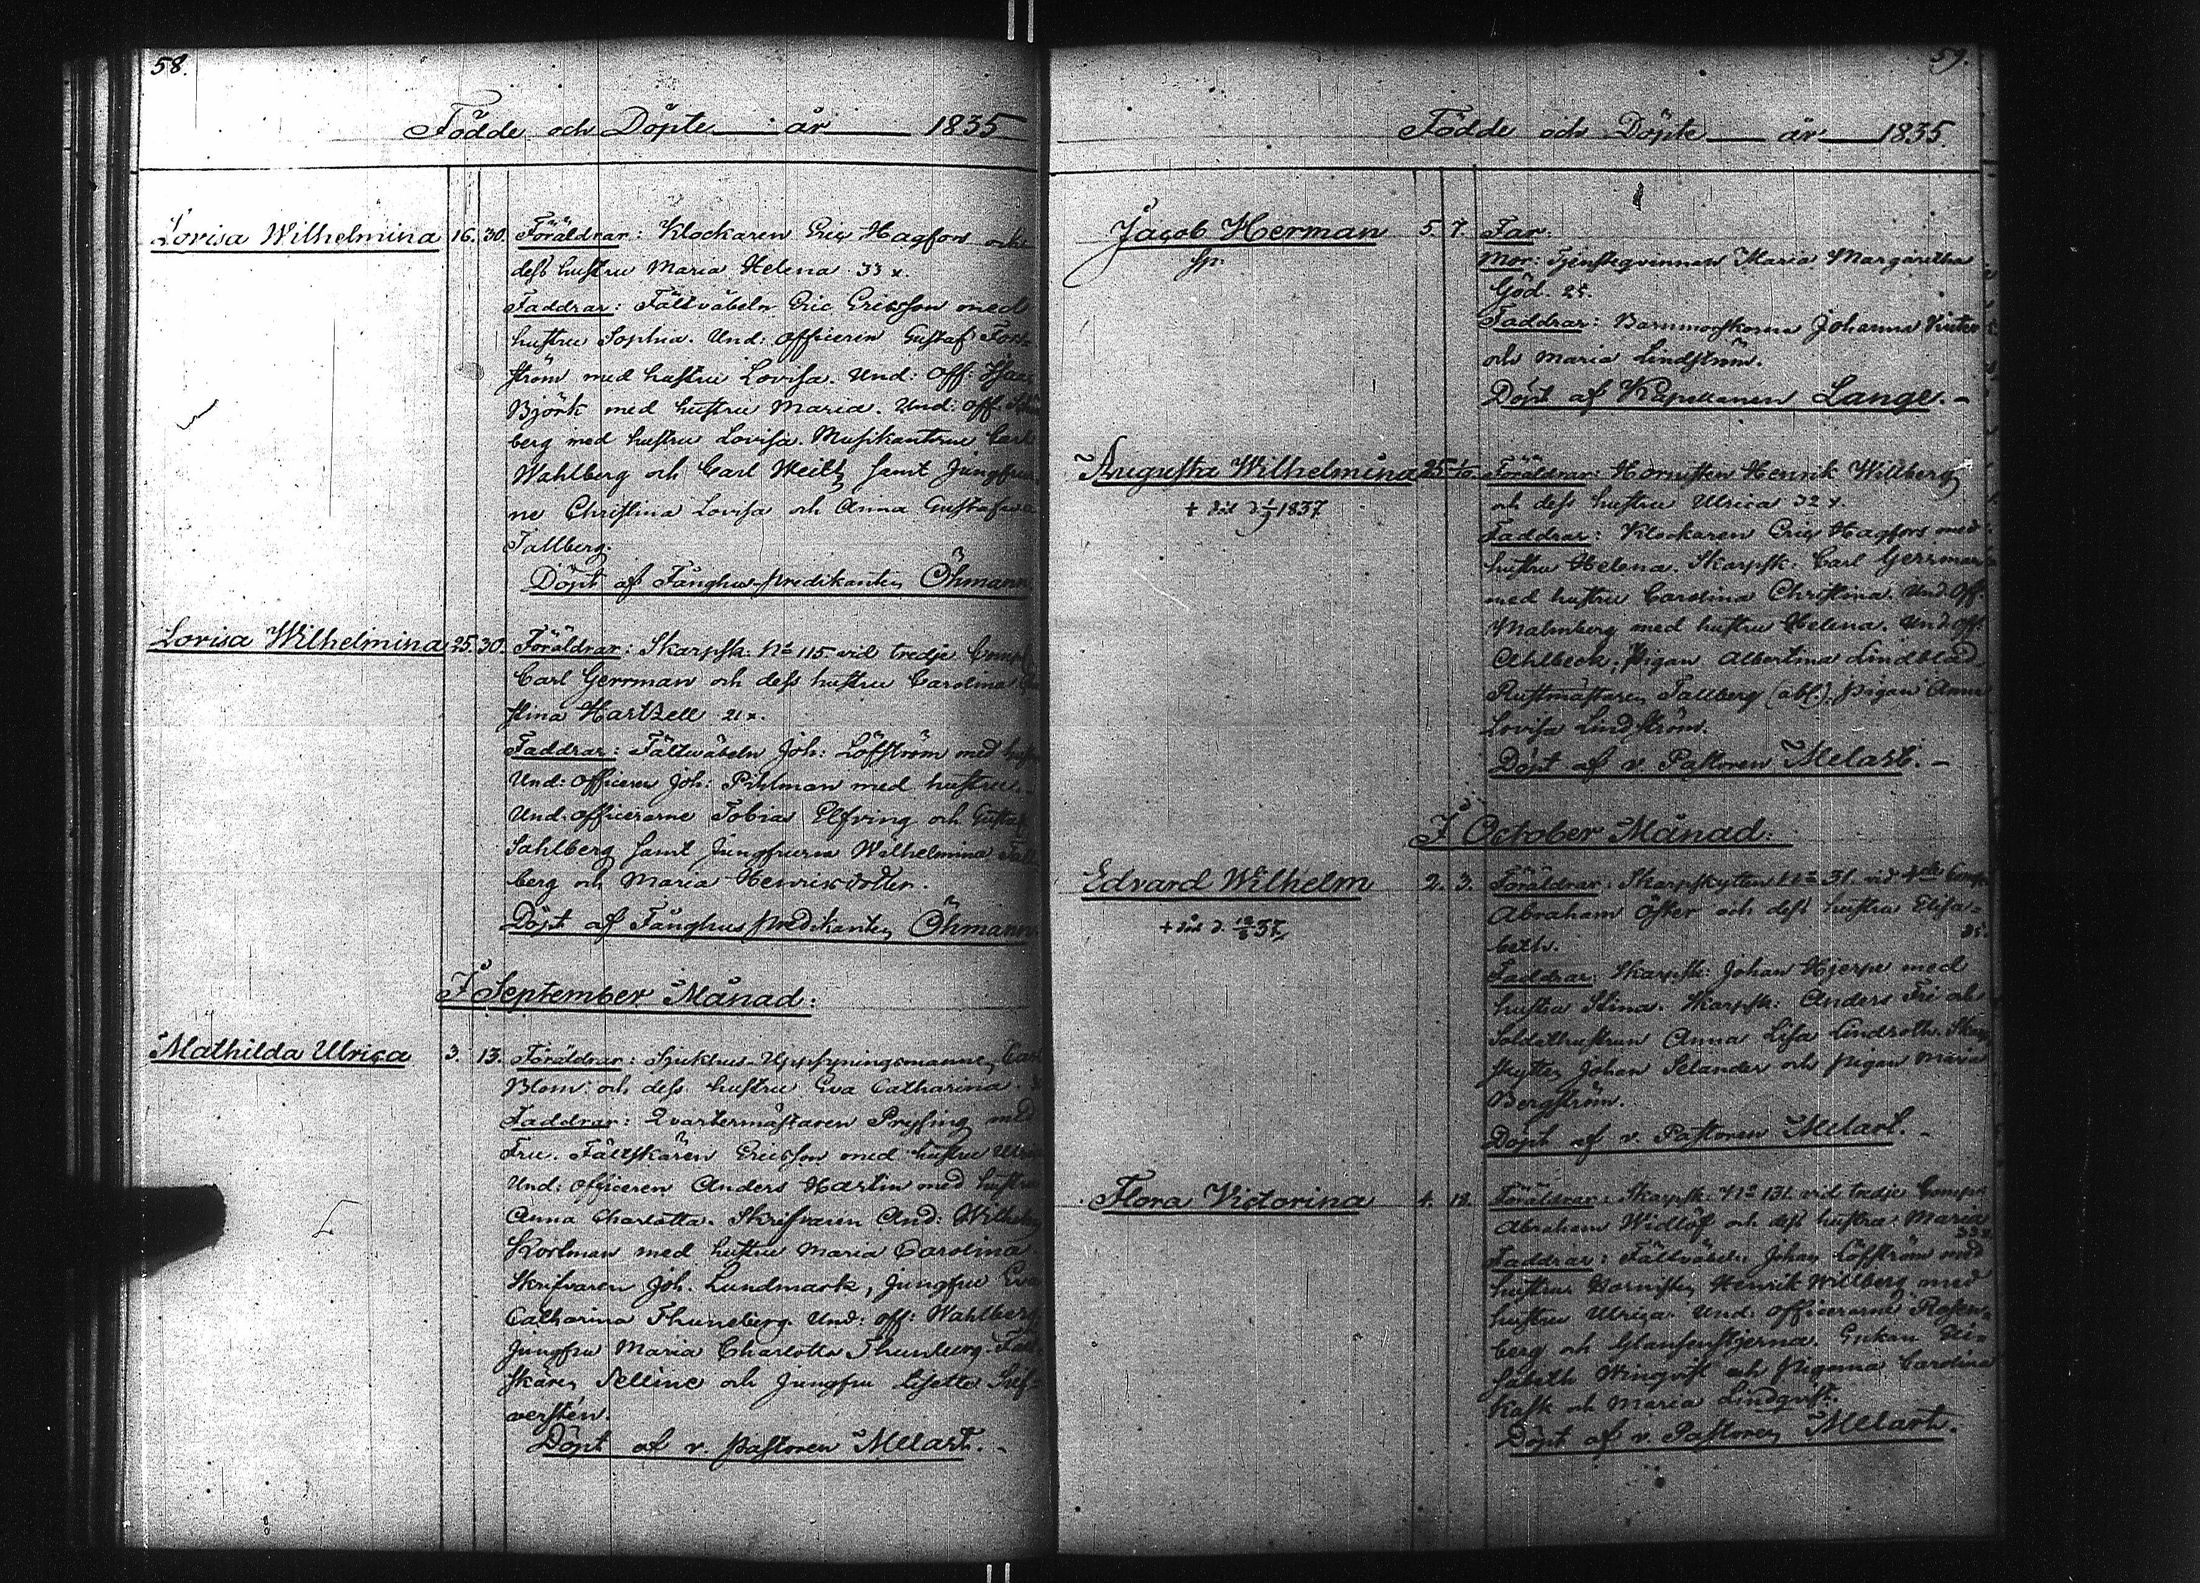 58.
Födde och Döpte år 1835
Lovisa Wilhelmina 16. 30. Föräldrar: Klockaren Eric Hagfors och
dess hustru Maria Helena 33
Faddrar: Fältväbeln Eric Ericsson med
hustru Sophia. Und: officeren Gustaf Fors
ström med hustru Lovisa. Und: off:
Björk med hustru Maria. Und: off.
berg med hustru Lovisa. Musikanterne Carl
Wahlberg och Carl Weitz samt Jungfrur
ne Christina Lovisa och Anna Gustafva
Tallberg.
Döpt af Fånghus-predikanten Öhmann
Lovisa Wilhelmina 25. 30. Föräldrar: Skarpsk. No 115 vid tredje Comp
Carl Gerrman och dess hustru Carolina
stina Hartzell 21
Faddrar: Fältväbeln Joh: Löfström med
Und: officeren Joh: Pihlman med hustru.
Und. officerarne Tobias Elfving och Gustaf
Sahlberg samt Jungfrurna Wilhelmina Tall
berg och Maria Henricsdotter.
Döpt af Fånghuspredikanten Öhmann
I September Månad:
Mathilda Ulrica 3. 13. Föräldrar: Sjukhus-Uppsyningsmannen Carl
Blom och dess hustru Eva Catharina.
Faddrar: Qvartermästaren Pryssing med
Fru. Fältskären Ericsson med hustru
Und: officeren Anders Hartin med hustru
Anna Charlotta. Skrifvaren And: Wilhelm
Kortman med hustru Maria Carolina
Skrifvaren Joh. Lundmark, jungfru Eva
Catharina Thuneberg. Und: off: Wahlberg
Jungfru Maria Charlotta Thunberg. Fält
skären Selline och Jungfru Lisette
versten.
Döpt af v. pastoren Melart.
59.
Födde och Döpte år 1835.
Jacob Herman 5. 7. Far.
Mor: Tjenstegvinnan Maria Margaretha
Göd. 25.
Faddrar: Barnmorskorna Johanna
och Maria Lindström.
Döpt af Kapellanen Lange.
Augusta Wilhelmina 25 Föräldrar: Hornisten Henrik Willberg
1837 och dess hustru Ulrica 32
Faddrar: Klockaren Eric Hagfors med
hustru Helena. Skarpsk: Carl Gerrman
med hustru Carolina Christina. Und. Off
Malmberg med hustru Helena. Und. off
Ahlbeck, pigan Albertina Lindblad.
Rustmästaren Tallberg pigan Anna
Lovisa Lindström.
Döpt af v. Pastoren Melart.
I October Månad.
Edvard Wilhelm 2. 3. Föräldrar: Skarpskytten No 31 vid Comp
Abraham Öster och dess hustru Elisa-
beth.
Faddrar: Skarpsk: Johan Hjerpe med
hustru Stina. Skarpsk: Anders Fri och
Soldathustrun Anna Lisa Lindroth. Skarp
skytten Johan Selander och pigan Maria
Bergström.
Döpt af v. Pastoren Melart.
Flora Victorina 4. 18. Föräldrar: Skarpsk. No 131. vid tredje Comp
Abraham Widlöf och dess hustru Maria
Faddrar: Fältväbeln Johan Löfström med
hustru. Hornisten Henrik Willberg med
hustru Ulrica. Und: officerarne Rosen-
berg och Glansenstjerna. Enkan Eli-
sabeth Winqvist och pigorna Carolina
Kask och Maria Lindqvist.
Döpt af v. Pastoren Melart.